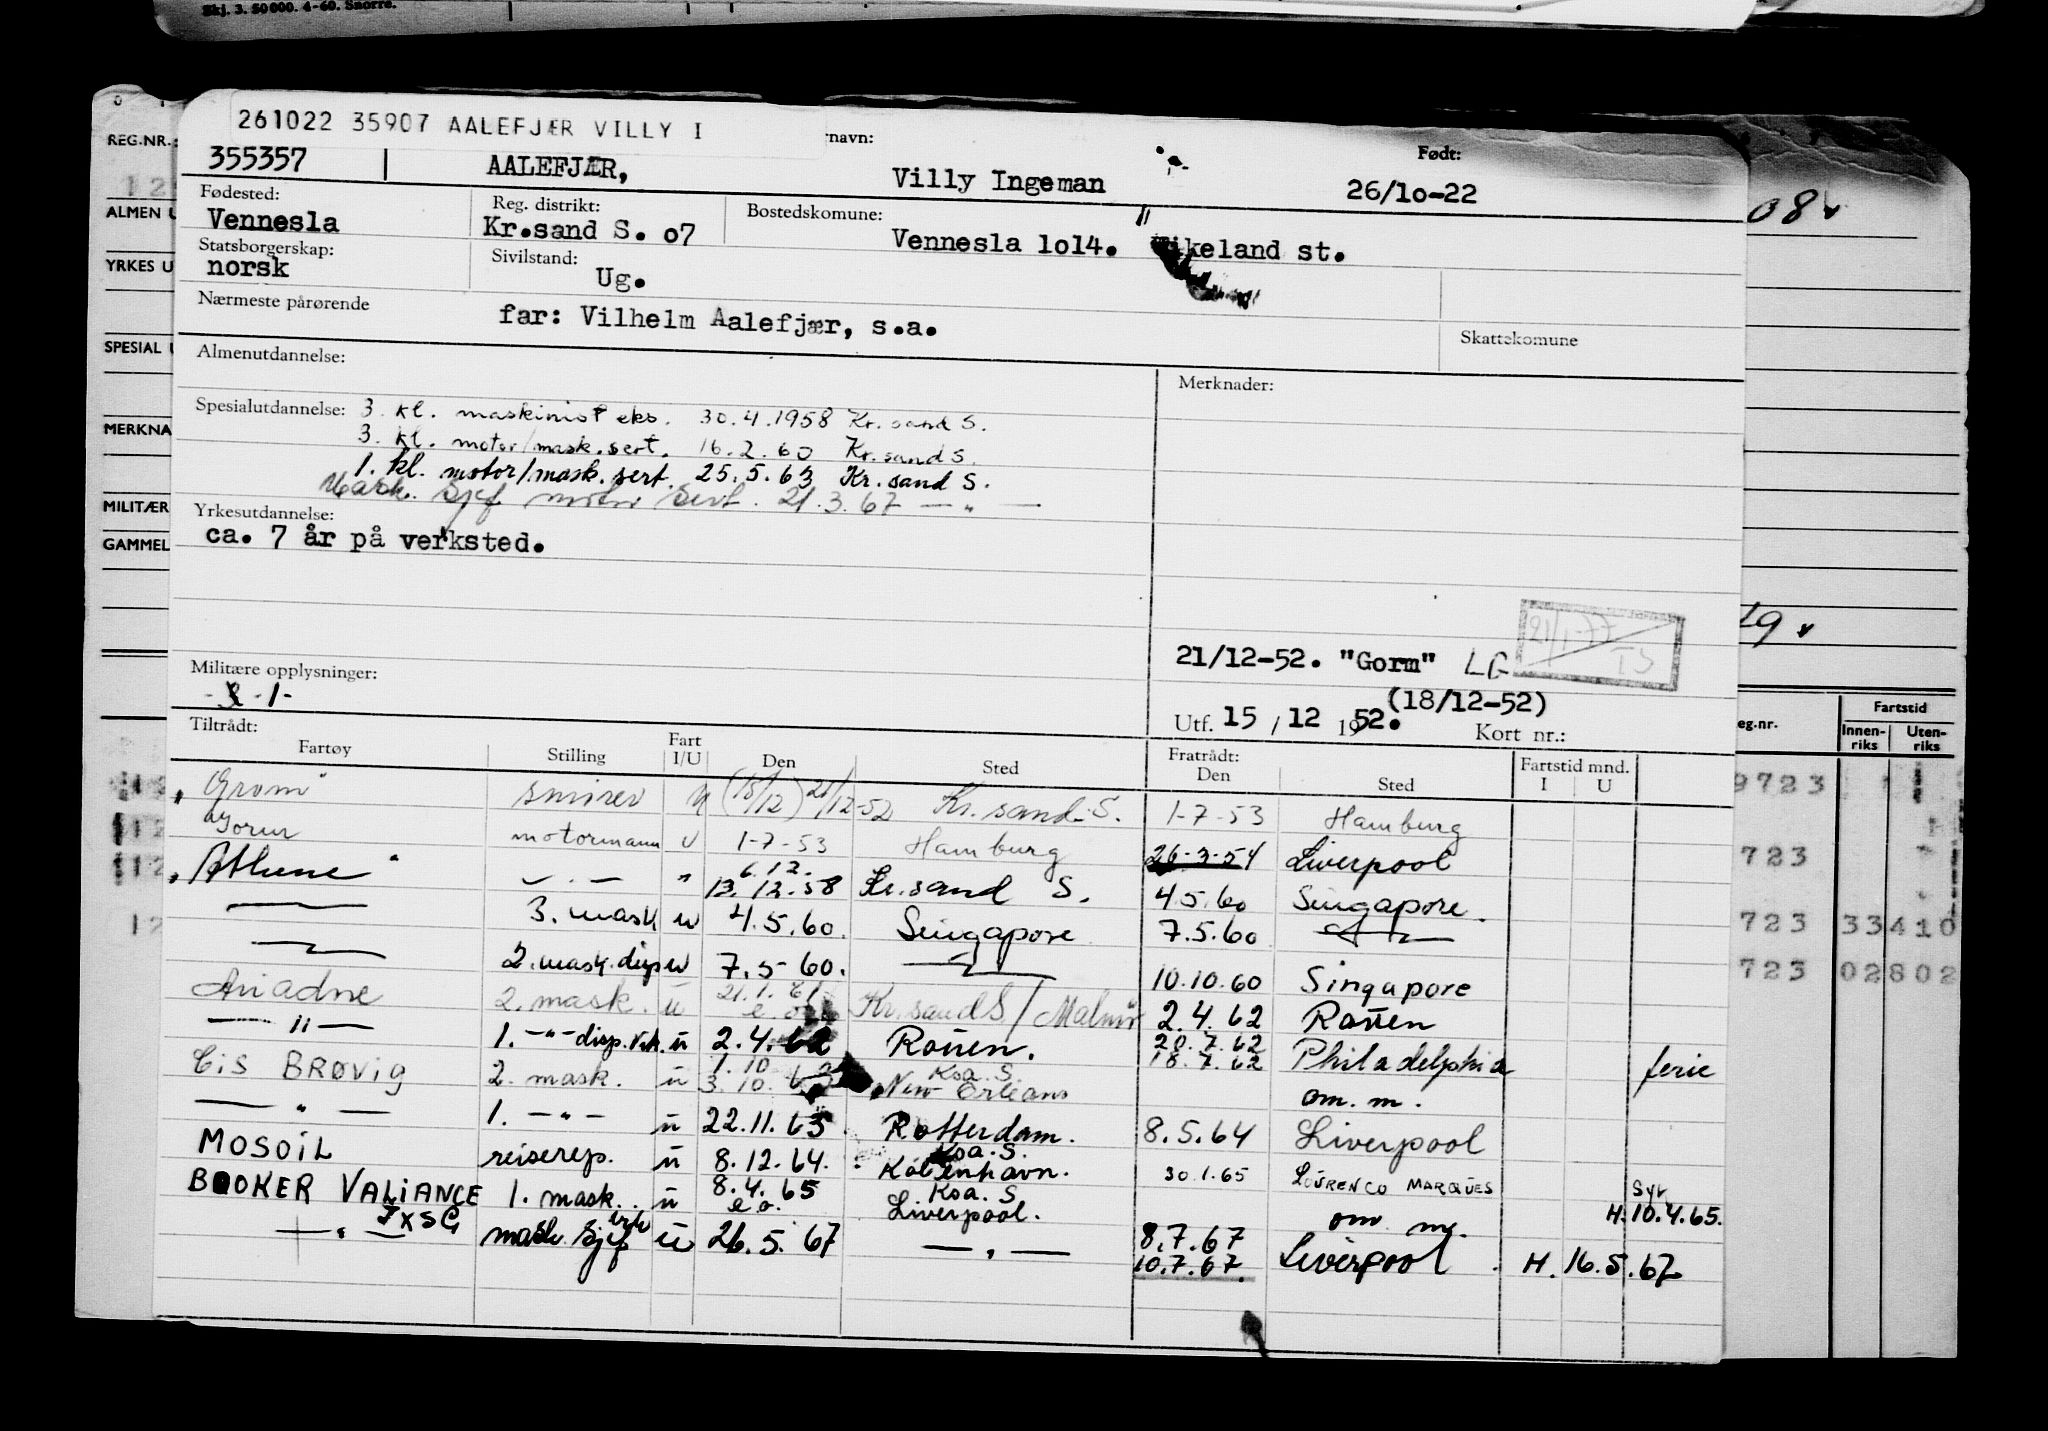 Skj. 3. 50000. 4-60. Snorre.
261022 35907 AALEFJÆR VILLY I
REG.NR.:
ALMEN U
YRKES U
SPESIAL U
MERKNA
MILITÆR
GAMMEL
355357 AALEFJÆR, navn: Villy Ingeman Født: 26/10-22
Fødested: Vennesla Reg. distrikt: Kr.sand S. 07 Bostedskomune: Vennesla 1014. Vikeland st.
Statsborgerskap: norsk Sivilstand: Ug.
Nærmeste pårørende far: Vilhelm Aalefjær, s.a.
Skattekomune
Almenutdannelse: Merknader:
Spesialutdannelse: 3. kl. maskinist eks. 30.4.1958 Kr.sand S.
3. kl. motor/mask.sert. 16.2.60 Kr.sand S.
1. kl. motor/mask.sert. 25.5.63 Kr.sand S.
Mask. sjef motor sert. 21.3.67 — " —
Yrkesutdannelse:
ca. 7 år på verksted.
21/12-52. "Gorm" LG 21/1-77 TS
Militære opplysninger: (18/12-52)
-1-
Utf. 15 / 12 1952. Kort nr.:
Tiltrådt: Fratrådt:
Fartøy Stilling Fart I/U Den Sted Den Sted Fartstid mnd. I U
"Grom" smører u (18/12) 21/12-52 Kr.sand.S. 1-7-53 Hamburg
Gorm motormann u 1-7-53 Hamburg 26-3-54 Liverpool
"Athene" — " — " 6.12. 13.12.58 Kr.sand S. 4.5.60 Singapore.
— " — 3. mask u 4.5.60. Singapore 7.5.60 — " —
— " — 2. mask. disp u 7.5-60. — " — 10.10.60 Singapore
Ariadne 2. mask. u 21.1.61 e.o. Kr.sand S./Malmö 2.4.62 Rouen
— " — 1. — " — disp. u 2.4.62 Rouen. 20.7.62 18.7.62 Philadelphia ferie
Cis BRØVIG 2. mask. u 1.10 3.10.62 Ksa. S. New Orleans om. m.
— " — 1. — " — u 22.11.63 Rotterdam. 8.5.64 Liverpool
MOSOIL reiserep. u 8.12.64. Ksa. S. København. 30.1.65 LOURENCO MARQUES
BOOKER VALIANCE 1. mask. u 8.4.65 e.o. Ksa. S. Liverpool. om m. Syr H. 10.4.65.
— " — mask sjef u 26.5.67 — " — 8.7.67 10.7.67. Liverpool H. 16.5.67
08
19
eg.nr. Fartstid
Innen-riks Uten-riks
9723
723
723 33410
723 02802